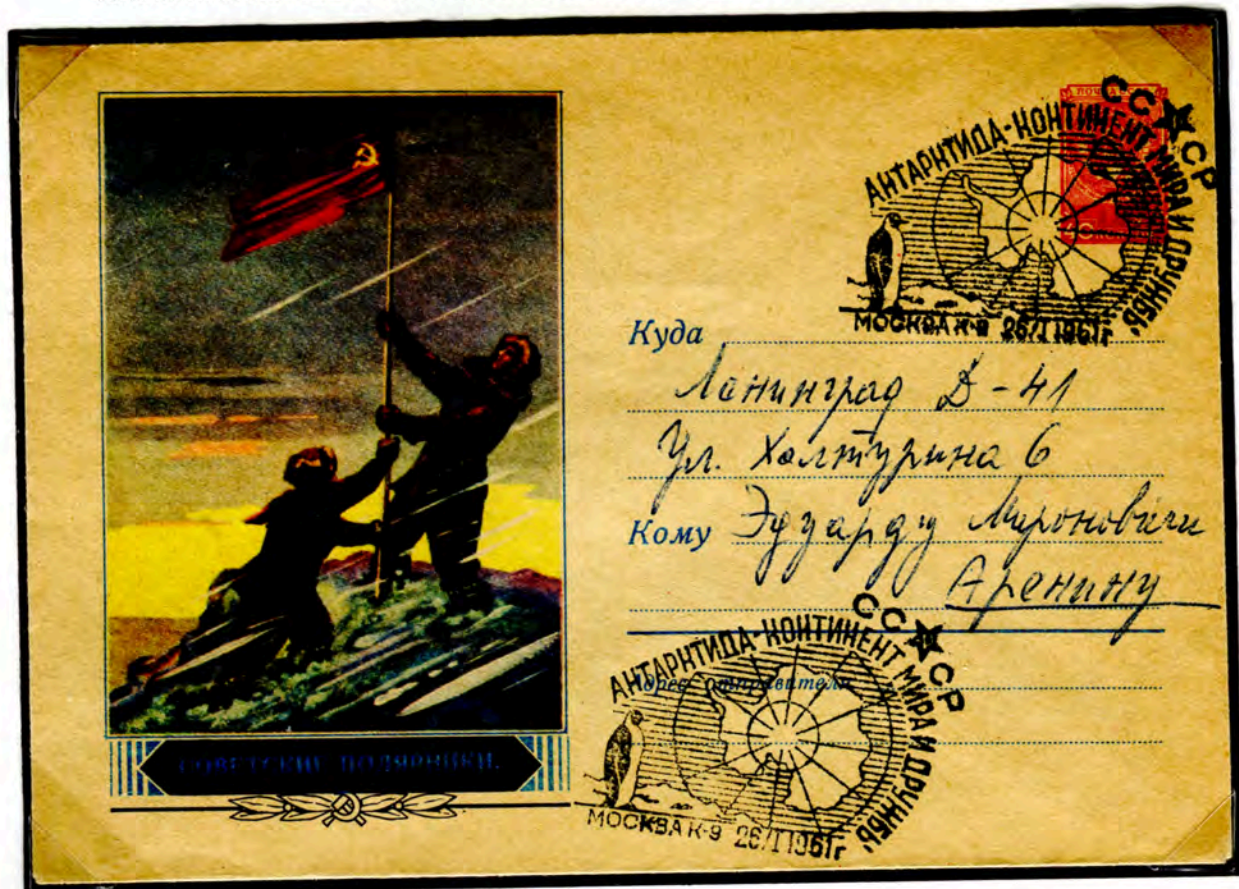 ПОЧТА СССР
СС☆СР
АНТАРКТИДА-КОНТИНЕНТ МИРА И ДРУЖБЫ
МОСКВА К-9 26/I 1961г
Куда
Ленинград Д-41
Ул. Халтурина 6
Кому Эдуарду Мироновичу
Аренину
СС☆СР
АНТАРКТИДА-КОНТИНЕНТ МИРА И ДРУЖБЫ
Адрес отправителя
МОСКВА К-9 26/I 1961г
СОВЕТСКИЕ ПОЛЯРНИКИ.